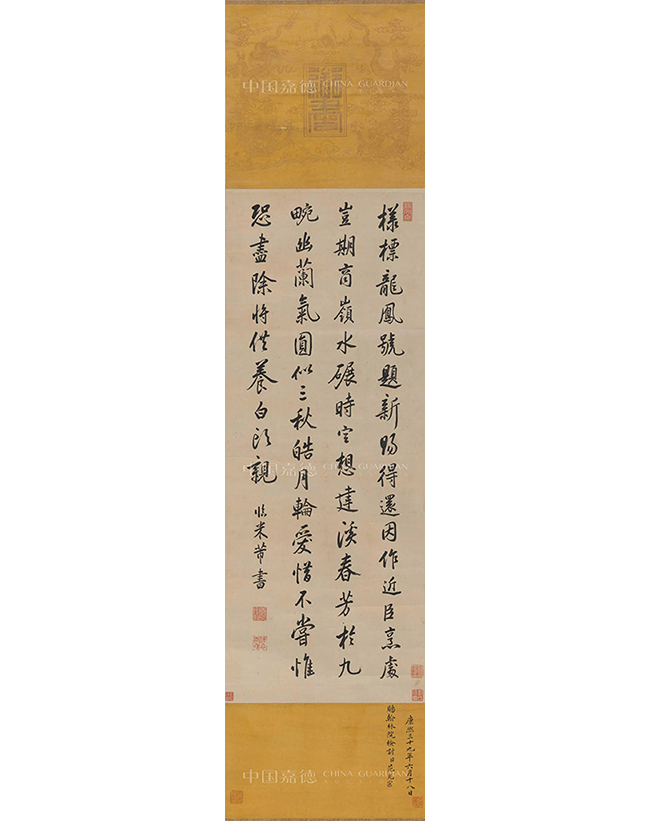 中国嘉德 CHINA GUARDIAN
御書
樣標龍鳳號題新賜得還因作近臣烹處
豈期商嶺水碾時空想建溪春芳於九
畹幽蘭氣圓似三秋皓月輪愛惜不嘗惟
恐盡除將供養白頭親
臨米芾書
中国嘉德 CHINA GUARDIAN
康熙三十九年六月十八日
賜翰林院檢討臣范光宗
中国嘉德 CHINA GUARDIAN